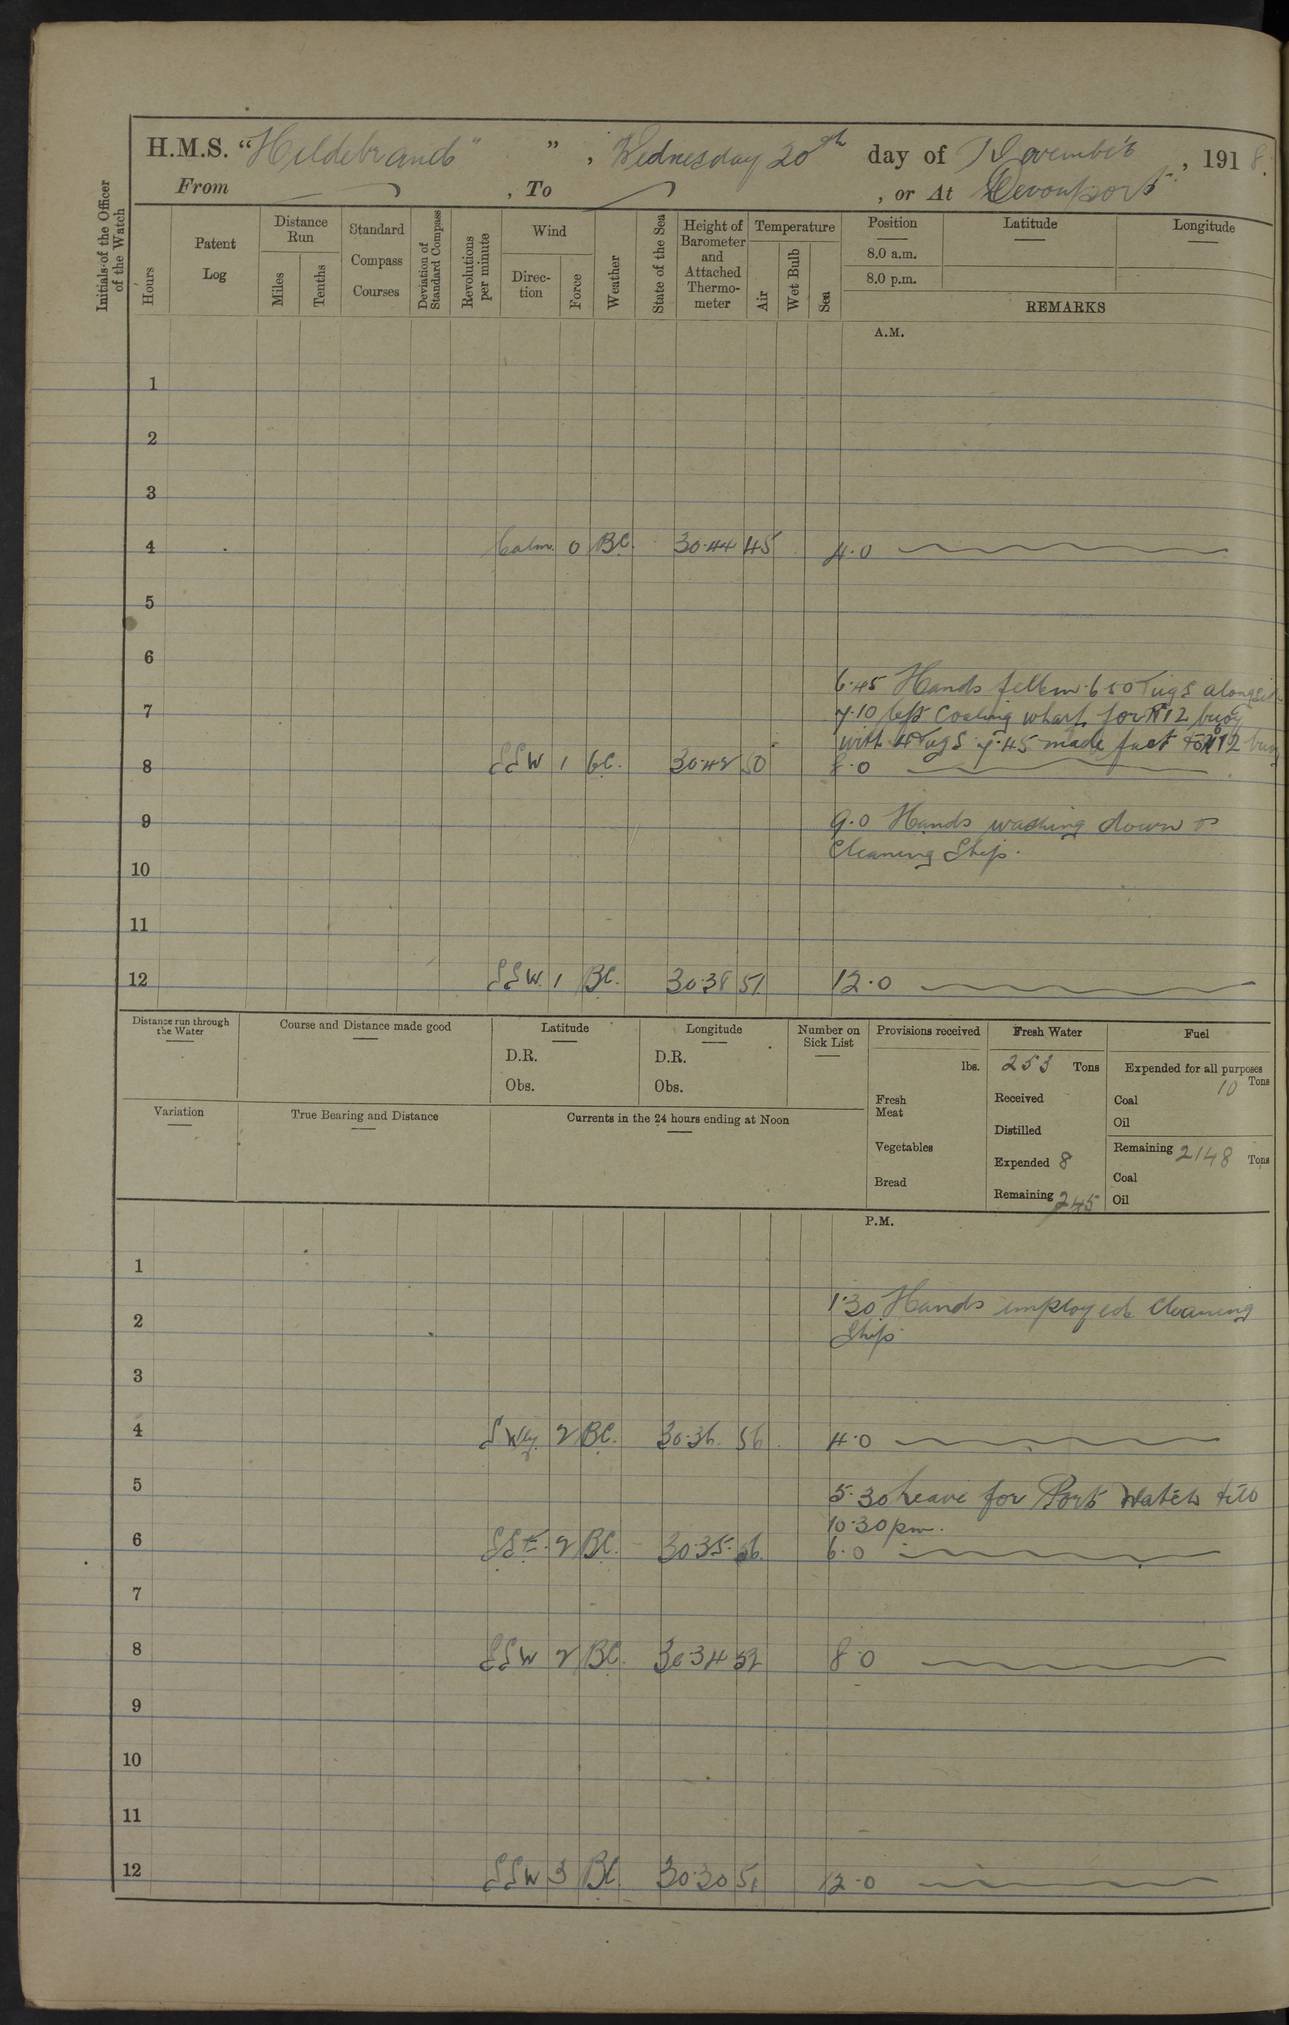 H.M.S. “Hildebrand” ” , Wednesday 20th day of November , 1918.
From , To , or At Devonport
Initials of the Officer of the Watch
Hours
Patent Log
Distance Run
Miles
Tenths
Standard Compass Courses
Deviation of Standard Compass
Revolutions per minute
Wind
Direction
Force
Weather
State of the Sea
Height of Barometer and Attached Thermometer
Temperature
Air
Wet Bulb
Sea
Position Latitude Longitude
8.0 a.m.
8.0 p.m.
REMARKS
A.M.
1
2
3
4 Calm. 0 BC. 30.44 45 4.0
5
6
6.45 Hands fell in. 6 50 Tugs alongside
7 7.10 left Coaling wharf for No 12 buoy
with 4 Tugs 7.45 made fast to No 12 buoy
8 SSW 1 bC. 30.42 50 8.0
9 9.0 Hands washing down &
Cleaning Ship.
10
11
12 SSW. 1 BC. 30.38 51 12.0
Distance run through the Water
Course and Distance made good
Latitude
D.R.
Obs.
Longitude
D.R.
Obs.
Number on Sick List
Provisions received
lbs.
Fresh Meat
Vegetables
Bread
Fresh Water
253 Tons
Received
Distilled
Expended 8
Remaining 245
Fuel
Expended for all purposes
10 Tons
Coal
Oil
Remaining 2148 Tons
Coal
Oil
Variation
True Bearing and Distance
Currents in the 24 hours ending at Noon
P.M.
1
1.30 Hands employed Cleaning
2 Ship
3
4 SWly. 2 BC. 30.36. 56 4.0
5 5.30 Leave for Port Watch till
10.30 pm.
6 SSE. 2 BC. 30.35. 56. 6.0
7
8 SSW 2 BC. 30.34 52 8.0
9
10
11
12 SSW 3 BC. 30.30 51 12.0